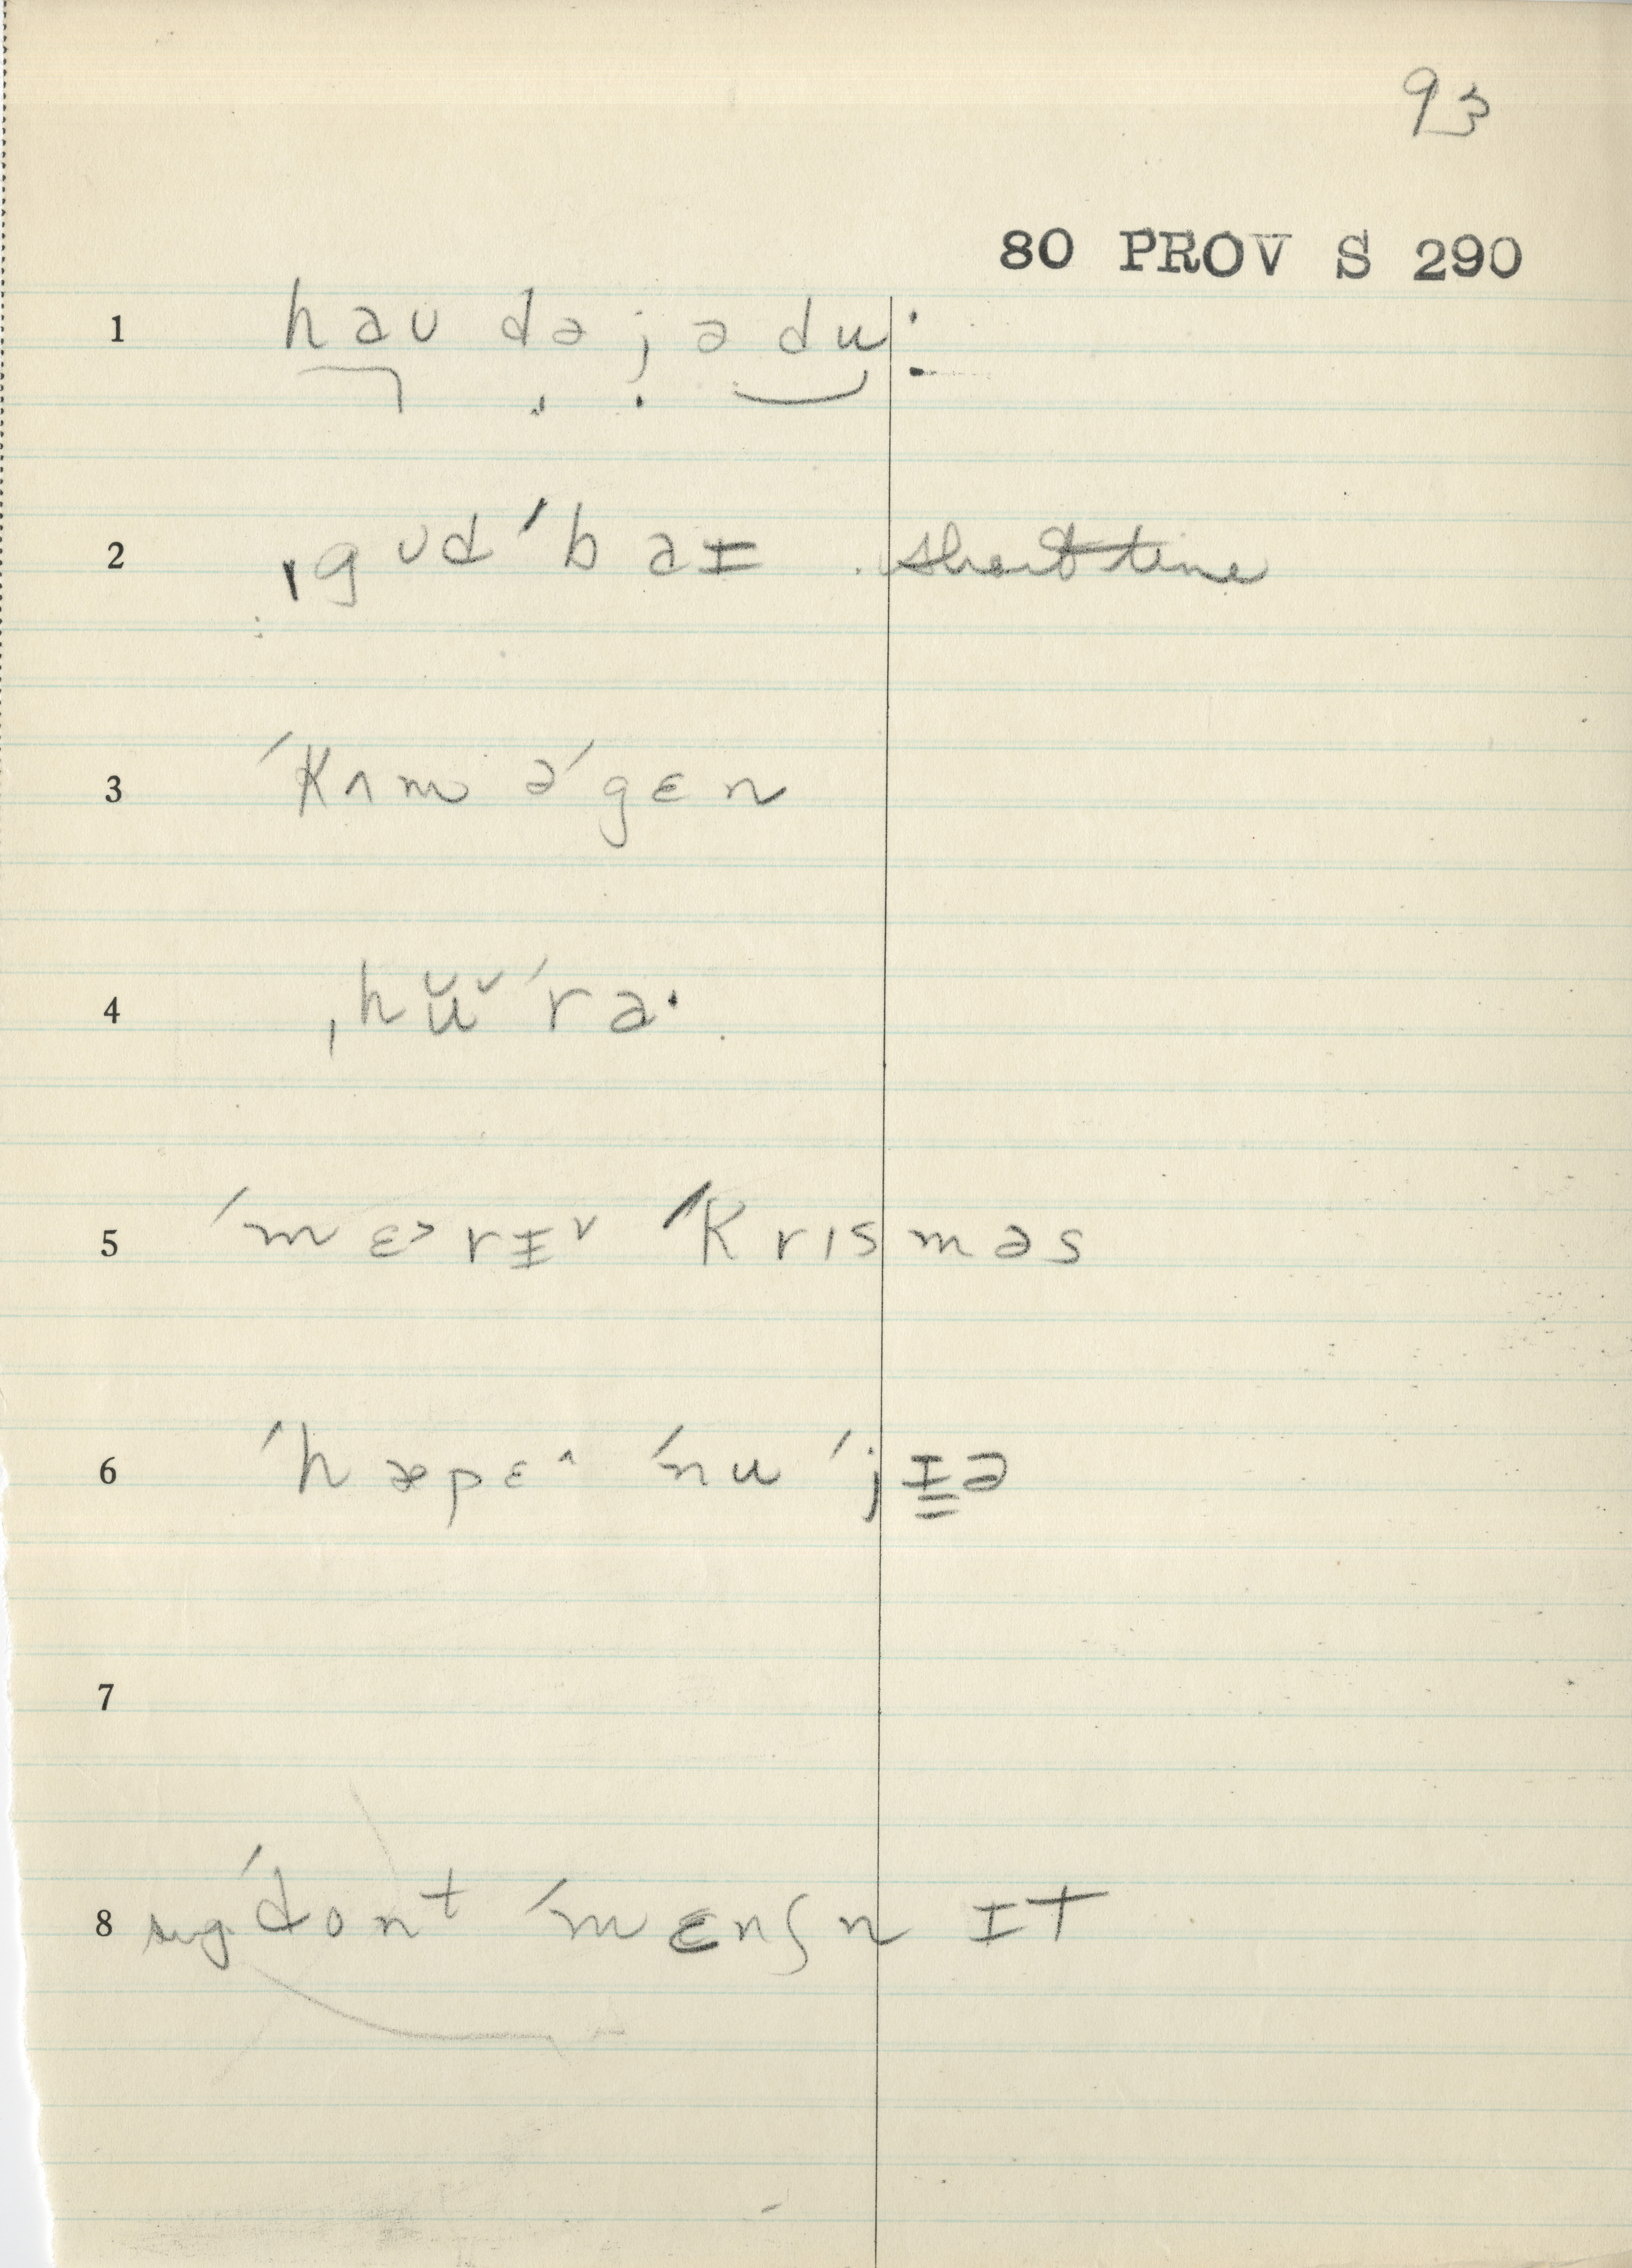 93
80 PROV S 290
1 haʊ dəjədu:
2 ˌgʊdˈbaɪ short time
3 ˈkʌm əˈgɛn
4 ˌhŭ˅ˈra·
5 ˈmɛ˃rɪ˅ ˈkrɪsməs
6 ˈhæpɛ^ ˈnu ˈjɪə
7
8 sug. ˈdont ˈmɛnʃn ɪt